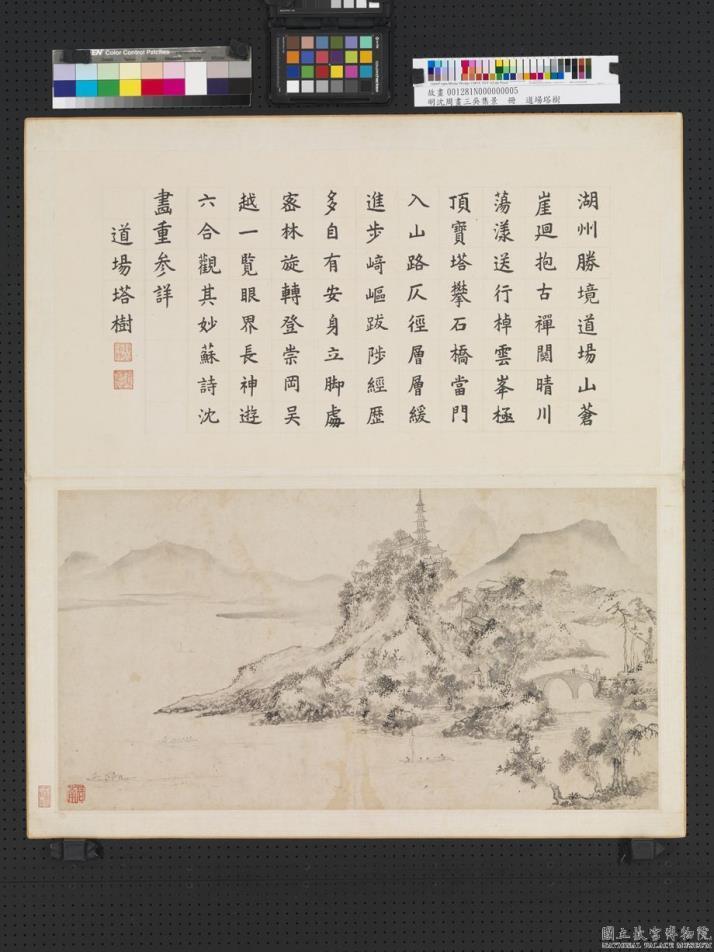 Color Control Patches
故畫 001281N000000005
明沈周畫三吳集景　冊　道場塔樹
湖州勝境道場山蒼
崖迴抱古禪關晴川
蕩漾送行棹雲峯極
頂寶塔攀石橋當門
入山路仄徑層層緩
進步﨑嶇跋陟經歷
多自有安身立脚處
密林旋轉登崇岡吴
越一覽眼界長神遊
六合觀其妙蘇詩沈
畫重參詳
道場塔樹
國立故宮博物院
NATIONAL PALACE MUSEUM